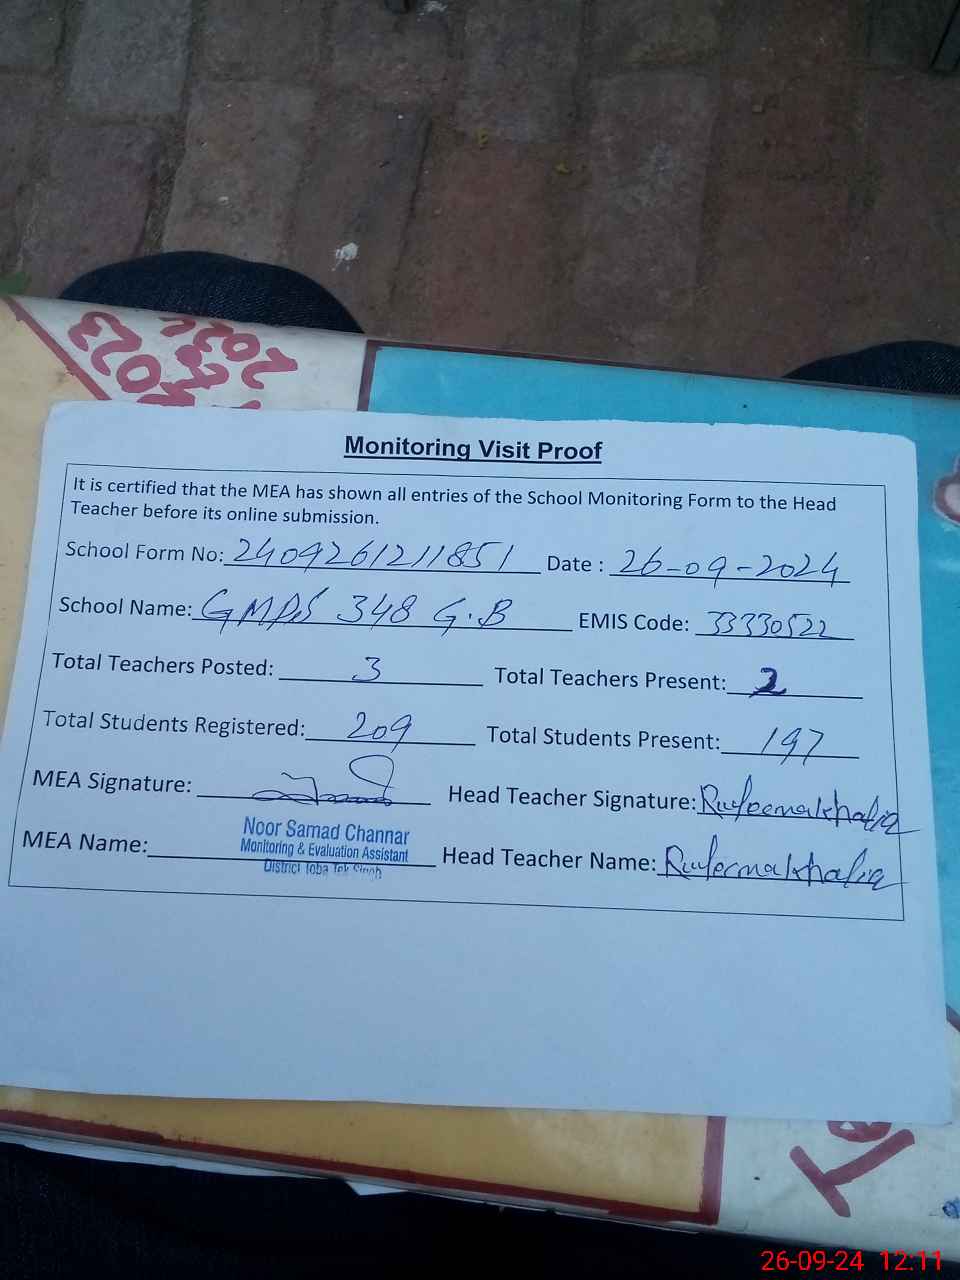 2022
2023
Monitoring Visit Proof
It is certified that the MEA has shown all entries of the School Monitoring Form to the Head
Teacher before its online submission.
School Form No: 2409261211851 Date : 26-09-2024
School Name: GMPS 348 G.B EMIS Code: 33330522
Total Teachers Posted: 3 Total Teachers Present: 2
Total Students Registered: 209 Total Students Present: 197
MEA Signature: Head Teacher Signature:
Noor Samad Channar
Monitoring & Evaluation Assistant
District Toba Tek Singh
MEA Name: Head Teacher Name:
26-09-24 12:11